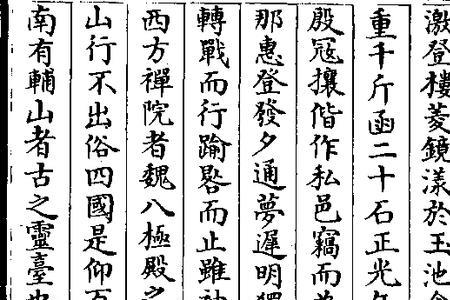 激登樓菱鏡漾於玉池
重千斤函二十石正光
殷冦攘偕作私邑竊而
那惠登發夕通夢遲明
轉戰而行踰晷而止雖
西方禪院者魏八極殿之
山行不出俗四國是仰百
南有輔山者古之靈臺也